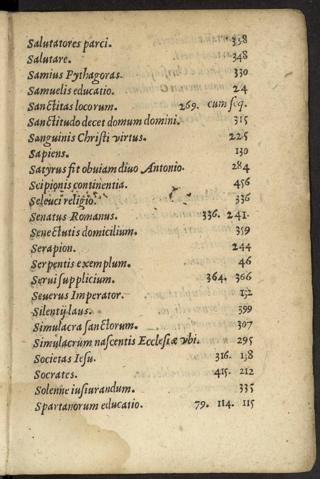 Salutatores parci. 358
Salutare. 348
Samius Pythagoras. 330
Samuelis educatio. 24
Sanctitas locorum. 269. cum seq.
Sanctitudo decet domum domini. 315
Sanguinis Christi virtus. 225
Sapiens. 130
Satyrus fit obuiam diuo Antonio. 284
Scipionis continentia. 456
Seleuci religio. 336
Senatus Romanus. 336. 241.
Senectutis domicilium. 359
Serapion. 244
Serpentis exemplum. 46
Serui supplicium. 364. 366
Seuerus Imperator. 132
Silentij laus. 399
Simulacra sanctorum. 307
Simulacrum nascentis Ecclesiæ vbi. 295
Societas Iesu. 316. 138
Socrates. 415. 212
Solenne iusiurandum. 335
Spartanorum educatio. 79. 114. 115